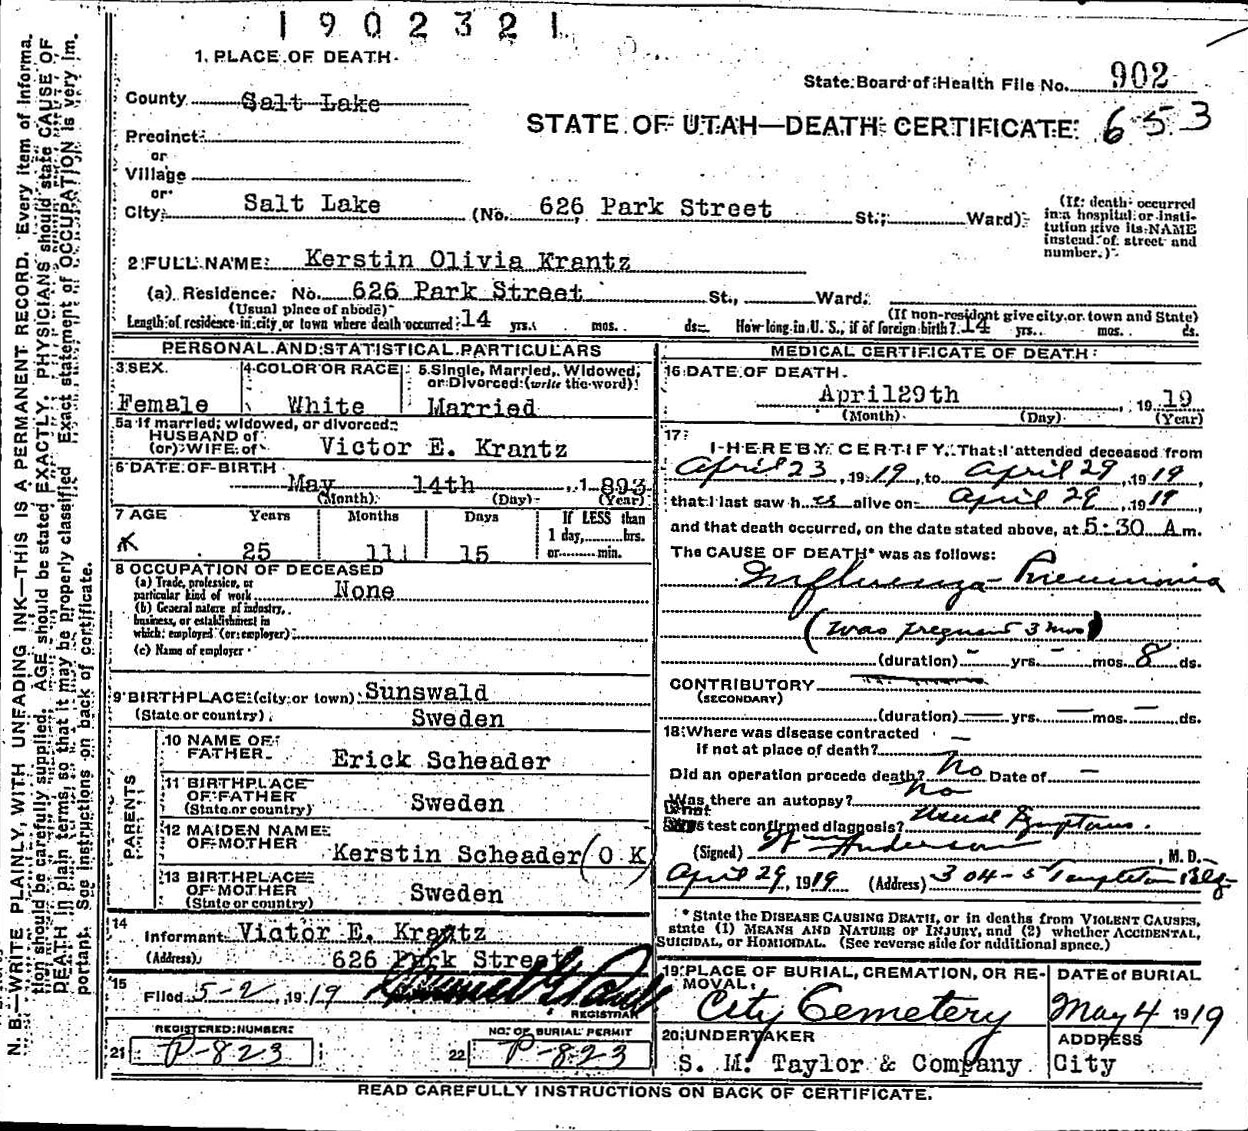 1902321
1. PLACE OF DEATH
State Board of Health File No. 902
County Salt Lake
STATE OF UTAH—DEATH CERTIFICATE 653
Precinct
or
Village
or
City Salt Lake (No. 626 Park Street St.; Ward)
(If death occurred in a hospital or institution give its NAME instead of street and number.)
2 FULL NAME Kerstin Olivia Krantz
(a) Residence. No. 626 Park Street St., Ward.
(Usual place of abode) (If non-resident give city or town and State)
Length of residence in city or town where death occurred 14 yrs. mos. ds. How long in U. S., if of foreign birth? 14 yrs. mos. ds.
PERSONAL AND STATISTICAL PARTICULARS
3 SEX Female
4 COLOR OR RACE White
5 Single, Married, Widowed, or Divorced (write the word) Married
5a If married, widowed, or divorced
HUSBAND of
(or) WIFE of Victor E. Krantz
6 DATE OF BIRTH May 14th, 1893
(Month) (Day) (Year)
7 AGE Years Months Days If LESS than
1 day, hrs.
25 11 15 or min.
8 OCCUPATION OF DECEASED
(a) Trade, profession, or
particular kind of work None
(b) General nature of industry,
business, or establishment in
which employed (or employer)
(c) Name of employer
9 BIRTHPLACE (city or town) Sunswald
(State or country) Sweden
PARENTS
10 NAME OF
FATHER Erick Scheader
11 BIRTHPLACE
OF FATHER Sweden
(State or country)
12 MAIDEN NAME
OF MOTHER Kerstin Scheader (O K)
13 BIRTHPLACE
OF MOTHER Sweden
(State or country)
14 Informant Victor E. Krantz
(Address) 626 Park Street
15 Filed 5-2, 1919
REGISTRAR
REGISTERED NUMBER
21 P-823
NO. OF BURIAL PERMIT
22 P-823
MEDICAL CERTIFICATE OF DEATH
16 DATE OF DEATH
April 29th, 1919
(Month) (Day) (Year)
17
I HEREBY CERTIFY, That I attended deceased from
April 23, 1919, to April 29, 1919,
that I last saw h er alive on April 29, 1919,
and that death occurred, on the date stated above, at 5:30 A m.
The CAUSE OF DEATH* was as follows:
Influenza-Pneumonia
(was pregnant 3 mos)
(duration) — yrs. — mos. 8 ds.
CONTRIBUTORY
(SECONDARY)
(duration) — yrs. — mos. — ds.
18 Where was disease contracted
if not at place of death? —
Did an operation precede death? No Date of —
Was there an autopsy? No
test confirmed diagnosis? Usual Symptoms.
(Signed) Wm Anderson, M. D.
April 29, 1919 (Address) 304-5 Templeton Bldg
* State the DISEASE CAUSING DEATH, or in deaths from VIOLENT CAUSES,
state (1) MEANS AND NATURE OF INJURY, and (2) whether ACCIDENTAL,
SUICIDAL, or HOMICIDAL. (See reverse side for additional space.)
19 PLACE OF BURIAL, CREMATION, OR RE-
MOVAL.
City Cemetery
DATE of BURIAL
May 4 1919
20 UNDERTAKER
S. M. Taylor & Company
ADDRESS
City
READ CAREFULLY INSTRUCTIONS ON BACK OF CERTIFICATE.
N. B.—WRITE PLAINLY, WITH UNFADING INK—THIS IS A PERMANENT RECORD. Every item of informa-
tion should be carefully supplied. AGE should be stated EXACTLY. PHYSICIANS should state CAUSE OF
DEATH in plain terms, so that it may be properly classified. Exact statement of OCCUPATION is very im-
portant. See instructions on back of certificate.